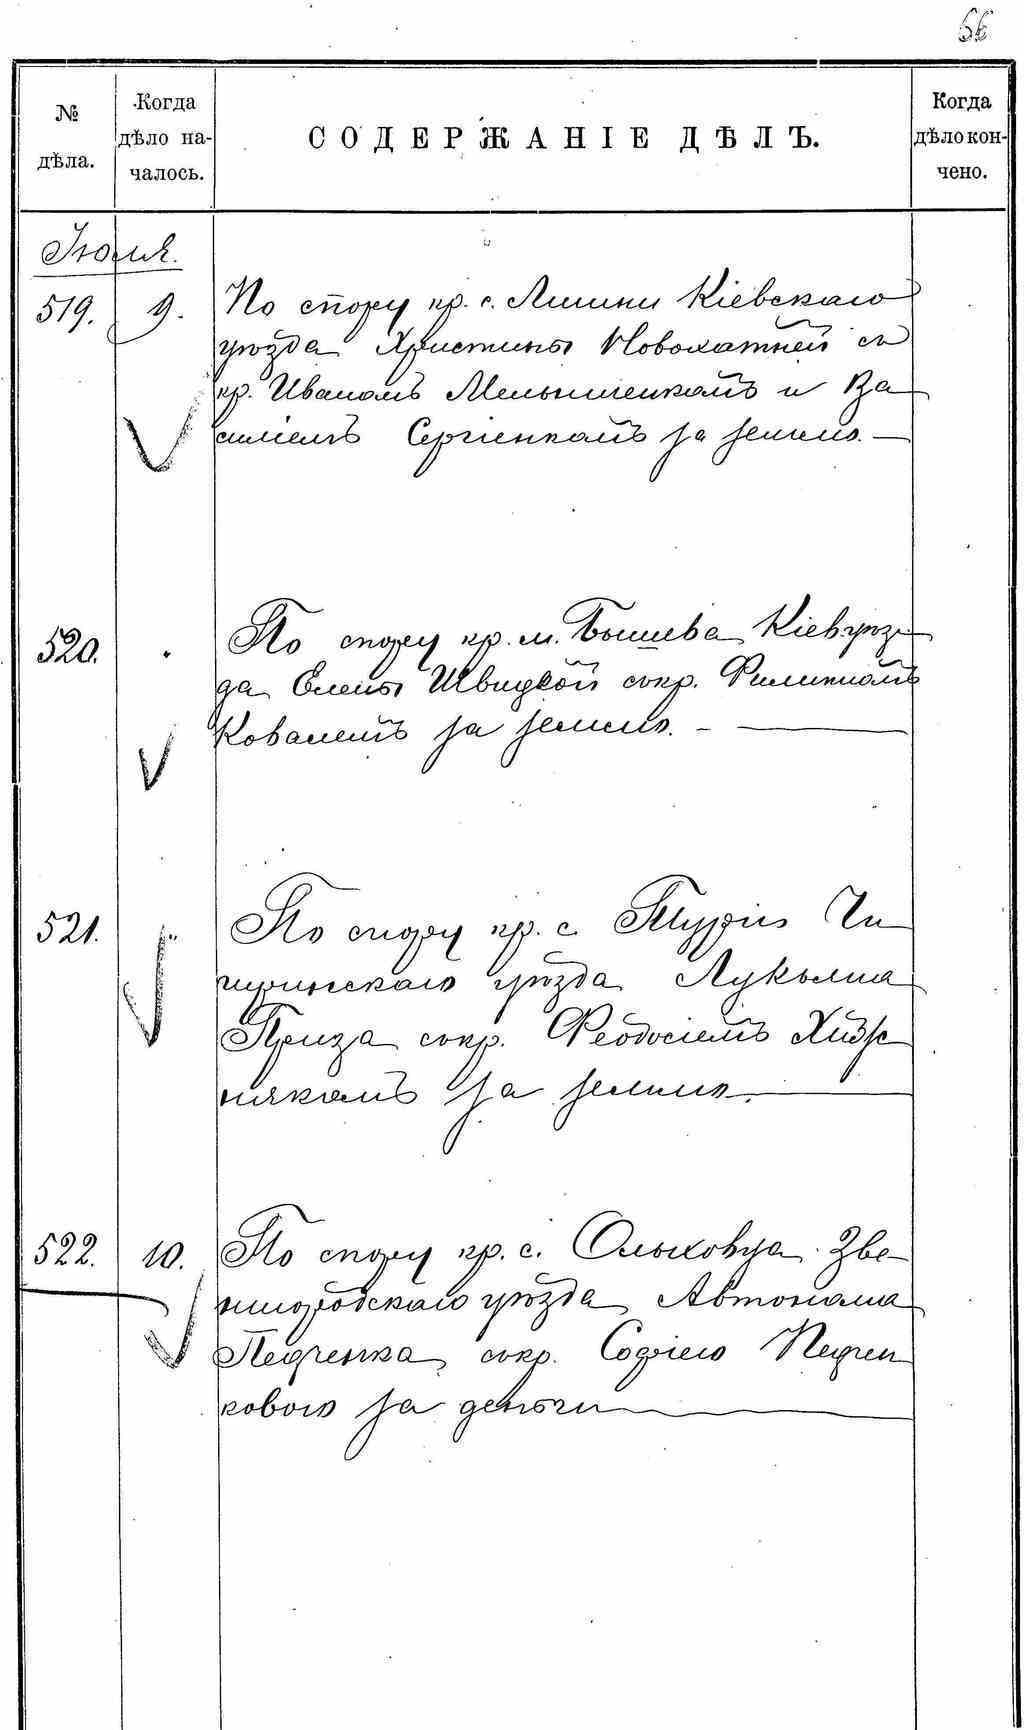 66
№ дѣла.
Когда дѣло на-чалось.
СОДЕРЖАНІЕ ДѢЛЪ.
Когда дѣло кон-чено.
Іюля.
519. 9. По спору кр. с. Липини Кіевскаго
уѣзда Христины Новохатней съ
кр. Иваномъ Мельниченкомъ и Ва
силіемъ Сергіенкомъ за землю. —
520. " По спору кр. м. Бышева Кіев уѣз-
да Елены Швидкой съ кр. Филиппомъ
Ковалемъ за землю. —
521. " По спору кр. с. Туріи Чи
гиринскаго уѣзда Лукьяна
Приза съ кр. Феодосіемъ Хиж
някомъ за землю.
522. 10. По спору кр. с. Ольховца Зве
нигородскаго уѣзда Автонома
Педченка съ кр. Софіею Педчен
ковою за деньги